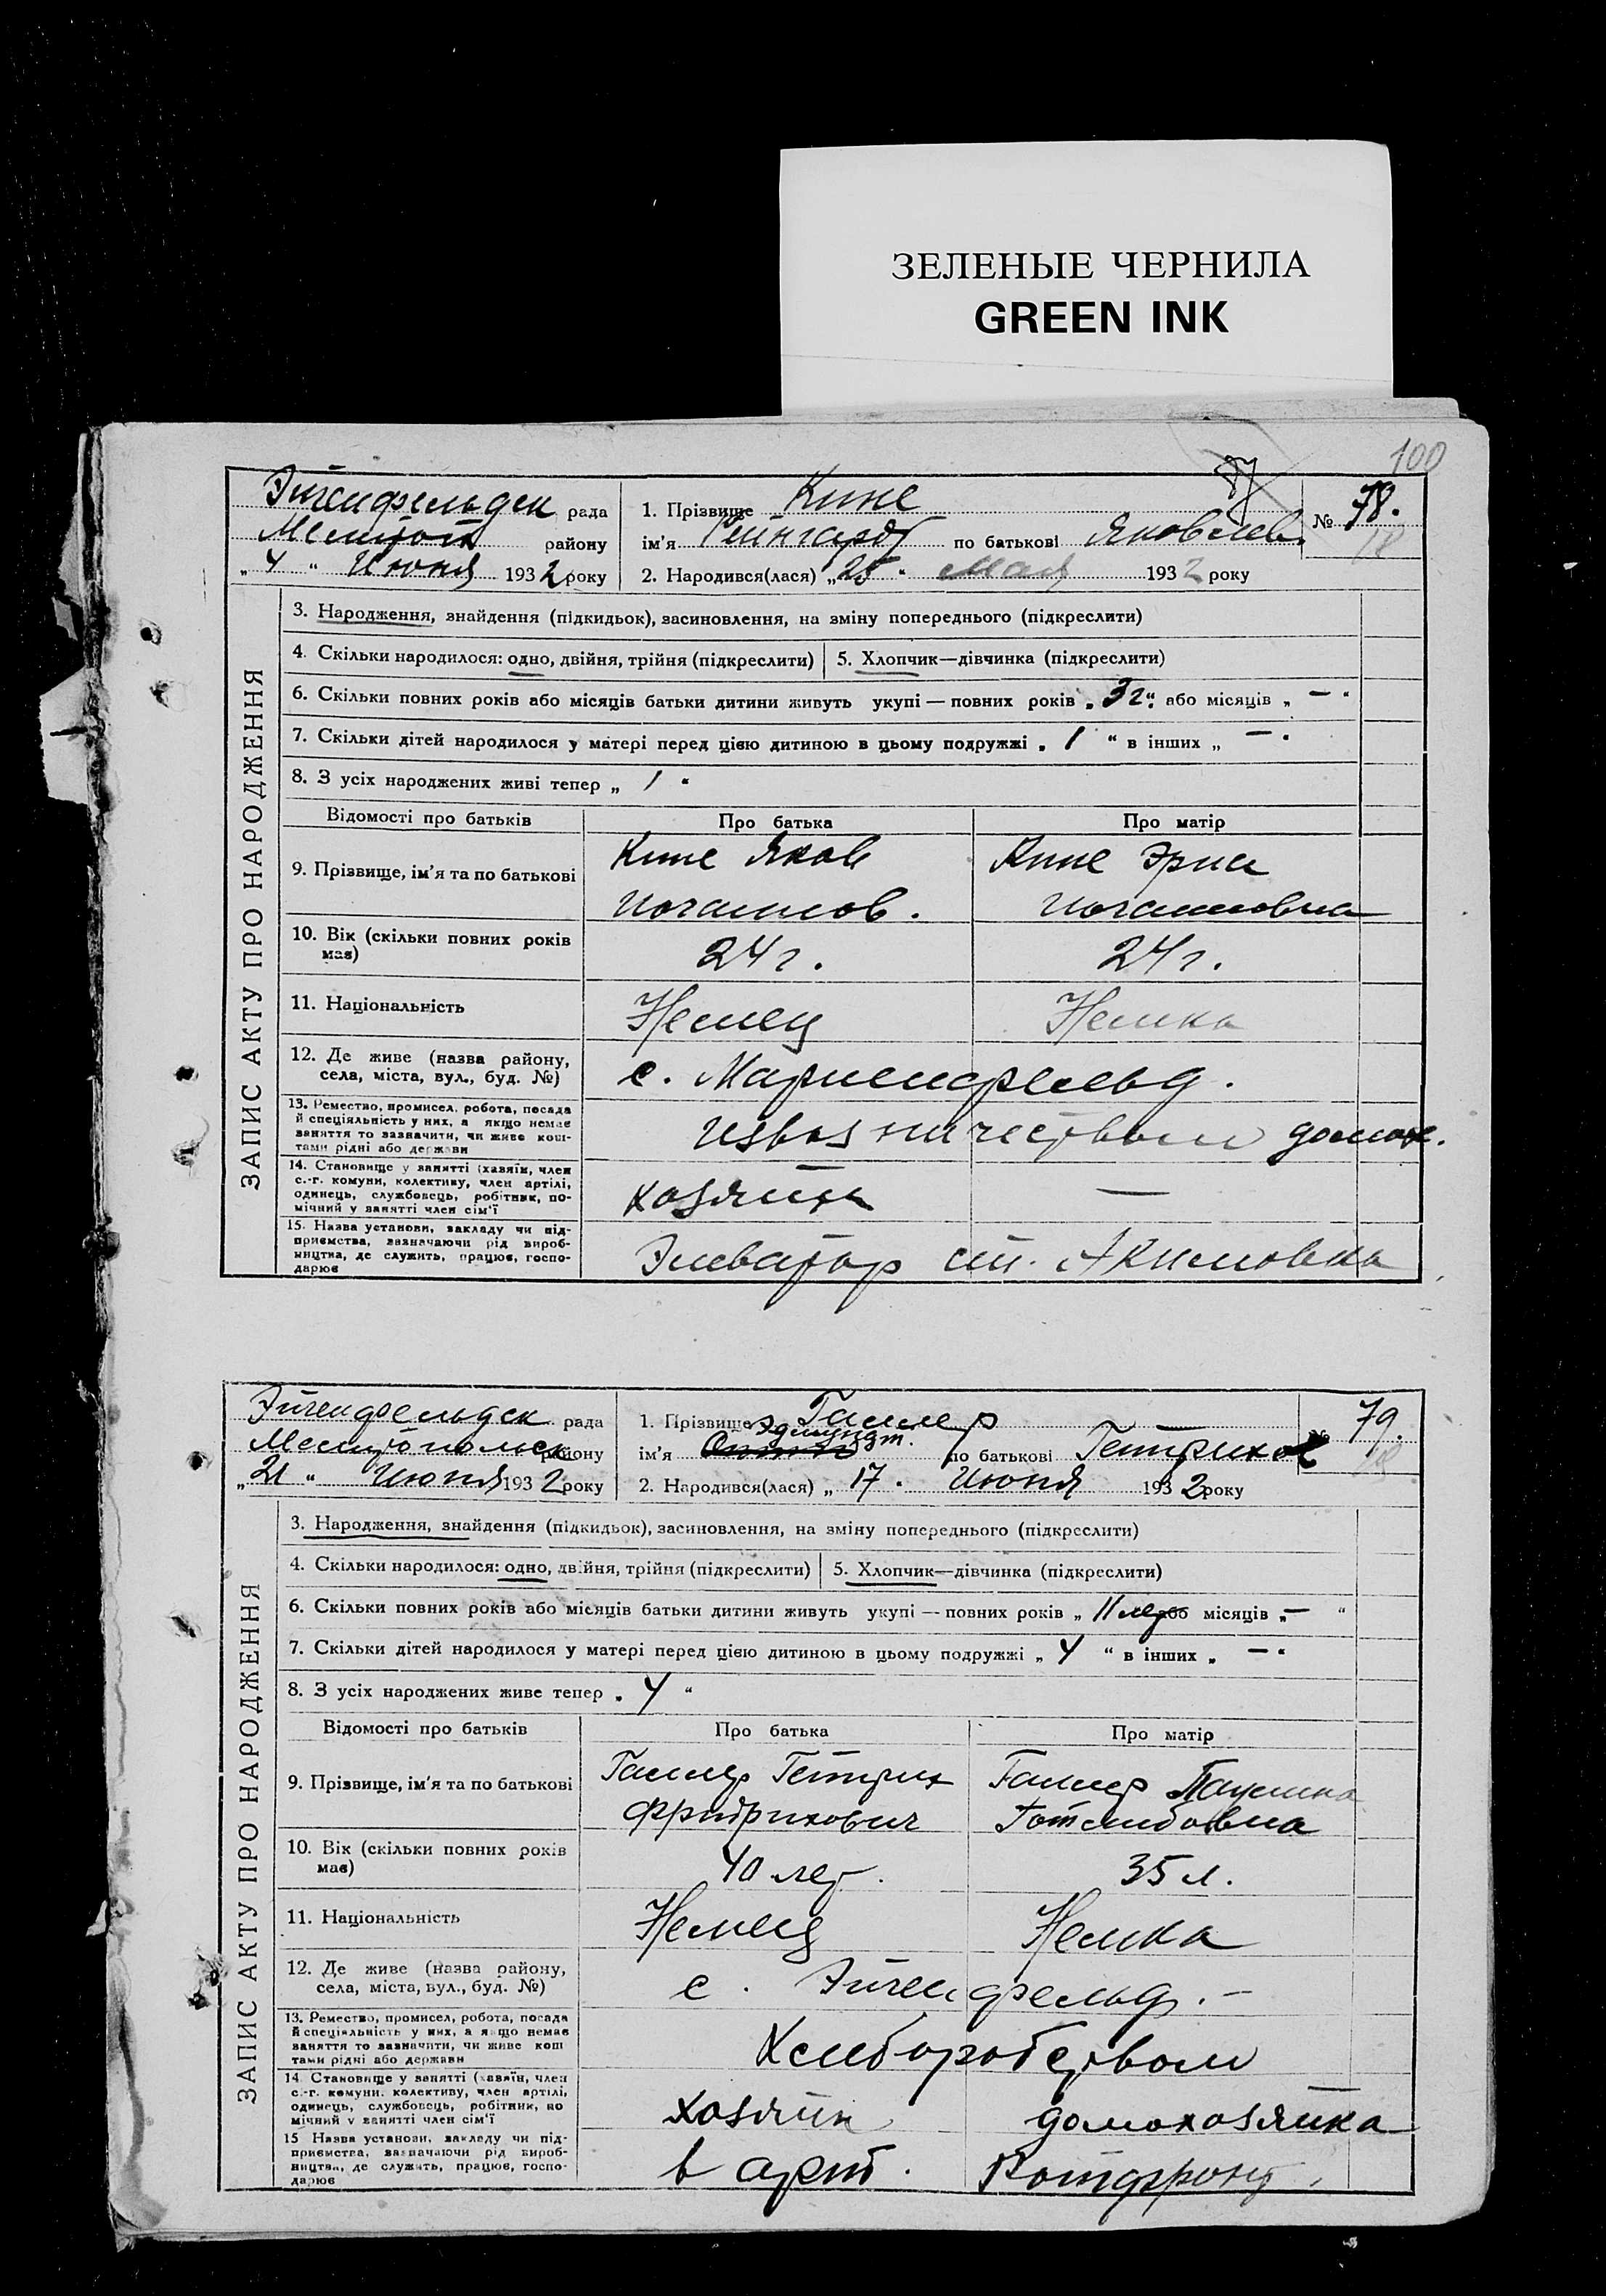 ЗЕЛЕНЫЕ ЧЕРНИЛА
GREEN INK
100
Эйгенфельдск рада
району
„ 4 “ Июня 1932 року
1. Прізвище Кине
ім'я Рейнгардт по батькові Яковлев.
2. Народився(лася) „ 25 “ Мая 1932 року
№ 78.
ЗАПИС АКТУ ПРО НАРОДЖЕННЯ
3. Народження, знайдення (підкидьок), засиновлення, на зміну попереднього (підкреслити)
4. Скільки народилося: одно, двійня, трійня (підкреслити) 5. Хлопчик—дівчинка (підкреслити)
6. Скільки повних років або місяців батьки дитини живуть укупі — повних років „ 3 г “ або місяців „ — “
7. Скільки дітей народилося у матері перед цією дитиною в цьому подружжі „ 1 “ в інших „ — “
8. З усіх народжених живі тепер „ 1 “
Відомості про батьків Про батька Про матір
9. Прізвище, ім'я та по батькові Кине Яков Кине Эрна
Иоганнов. Иоганновна
10. Вік (скільки повних років має) 24 г. 24 г.
11. Національність Немец Немка
12. Де живе (назва району, села, міста, вул., буд. №) с. Мариенфельд.
13. Ремество, промисел, робота, посада й спеціяльність у них, а якщо немає заняття то зазначити, чи живе коштами рідні або держави Извозничеством домох.
14. Становище у занятті (хазяїн, член с.-г. комуни, колективу, член артілі, одинець, службовець, робітник, помічний у занятті член сім'ї хозяин —
15. Назва установи, закладу чи підприємства, зазначаючи рід виробництва, де служить, працює, господарює Элеватор ст. Акимовка
Эйгенфельдск рада
Мелитопольск району
„ 21 “ Июня 1932 року
1. Прізвище Галлер
Эдмундт.
ім'я по батькові Гейнрихов
2. Народився(лася) „ 17 “ Июня 1932 року
№ 79.
ЗАПИС АКТУ ПРО НАРОДЖЕННЯ
3. Народження, знайдення (підкидьок), засиновлення, на зміну попереднього (підкреслити)
4. Скільки народилося: одно, двійня, трійня (підкреслити) 5. Хлопчик—дівчинка (підкреслити)
6. Скільки повних років або місяців батьки дитини живуть укупі — повних років „ 11 лет або місяців „ — “
7. Скільки дітей народилося у матері перед цією дитиною в цьому подружжі „ 4 “ в інших „ — “
8. З усіх народжених живе тепер „ 4 “
Відомості про батьків Про батька Про матір
9. Прізвище, ім'я та по батькові Галлер Гейнрих Галлер Паулина
Фридрихович Готлибовна
10. Вік (скільки повних років має) 40 лет. 35 л.
11. Національність Немец Немка
12. Де живе (назва району, села, міста, вул., буд. №) с. Эйгенфельд. —
13. Ремество, промисел, робота, посада й спеціяльність у них, а якщо немає заняття то зазначити, чи живе коштами рідні або держави Хлеборобством
14. Становище у занятті (хазяїн, член с.-г. комуни, колективу, член артілі, одинець, службовець, робітник, помічний у занятті член сім'ї хозяин домохозяйка
15 Назва установи, закладу чи підприємства, зазначаючи рід виробництва, де служить, працює, господарює в арт. Ротфронт.